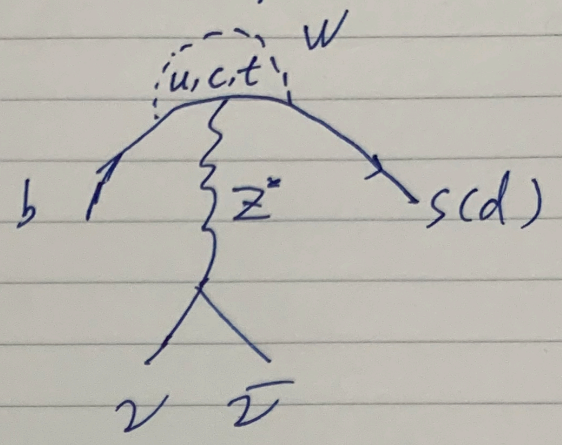 W
u, c, t
b
Z*
s(d)
ν ν̅